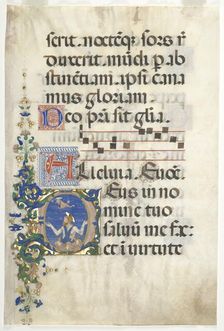 serit. noctẽq; sors ñ
duxerit. mũdi p̱ ab
stinentiam. ipsi cana
mus gloriam.
Deo pr̃i sit glia.
Alleluia. Euoẽ.
Deus in no
mine tuo
saluũ me fac.
et i uirtute